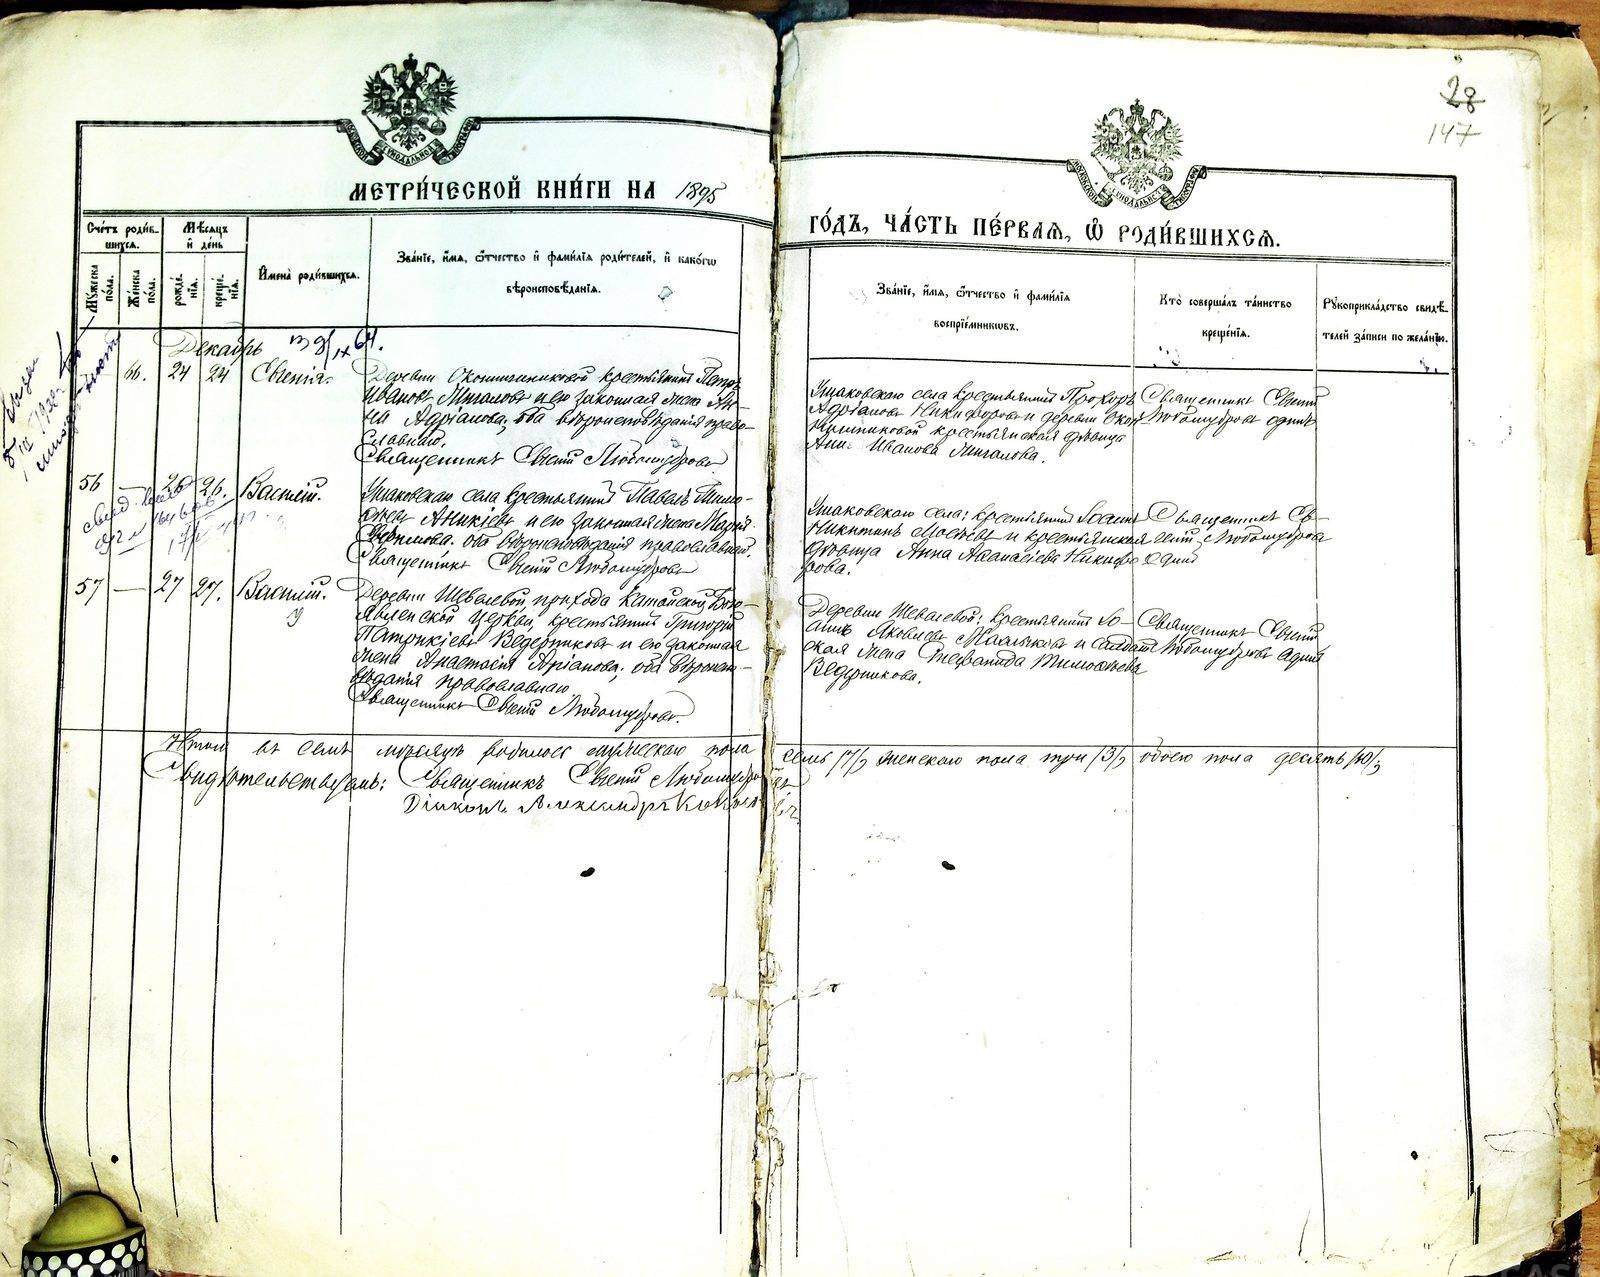 28
147
МЕТРИ́ЧЕСКОЙ КНИ́ГИ НА 1895
ГО́ДЪ, ЧА́СТЬ ПЕ́РВАЯ, Ѽ РОДИ́ВШИХСѦ.
Сче́тъ роди́в-
шихсѧ.
Мꙋ́жеска
по́ла.
Же́нска
по́ла.
Мѣ́сѧцъ
и҆ де́нь
рожде́-
нїѧ.
креще́-
нїѧ.
И҆мена̀ роди́вшихсѧ.
Зва́нїе, и҆́мѧ, ѻ҆́тчество и҆ фами́лїѧ роди́телей, и҆ како́гѡ
вѣроисповѣ́данїѧ.
Зва́нїе, и҆́мѧ, ѻ҆́тчество и҆ фами́лїѧ
воспрїе́мникѡвъ.
Кто̀ соверша́лъ та́инство
креще́нїѧ.
Рꙋкоприкла́дство свидѣ́-
телей за́писи по жела́нїю.
Декабрь
66. 24 24 Евгенія.
Деревни крестьянинъ Петръ
Ивановъ Мигаловъ и его законная жена Ан-
на Адріанова, оба вѣроисповѣданія право-
славнаго.
Священникъ Евгеній Любомудровъ
Ушаковскаго села крестьянинъ Прохоръ
Адріановъ Никифоровъ и деревни
крестьянская дѣвица
Анна Иванова Мигалова.
Священникъ Евгеній
Любомудровъ одинъ
56 — 26 26. Василій.
Ушаковскаго села крестьянинъ Павелъ Тимо-
феевъ Аникіевъ и его законная жена Марія
оба вѣроисповѣданія православнаго.
Священникъ Евгеній Любомудровъ
Ушаковскаго села: крестьянинъ Іоаннъ
Никитинъ и крестьянская
дѣвица Анна Аѳанасіева Никифо
рова.
Священникъ Ев-
геній Любомудровъ
одинъ
57 — 27 27. Василій.
Деревни Шевелевой, прихода Китойской Бого-
явленской церкви, крестьянинъ Григорій
Патрикіевъ Ведерниковъ и его законная
жена Анастасія оба вѣроиспо-
вѣданія православнаго
Священникъ Евгеній Любомудровъ.
Деревни Шевелевой; крестьянинъ Іо-
аннъ Яковлевъ и солдат
ская жена Стефанида Тимоѳеева
Ведерникова.
Священникъ Евгеній
Любомудровъ одинъ
Итого въ семъ мѣсяцѣ родилось мужескаго пола семь /7/, женскаго пола три /3/, обоего пола десять /10/;
Свидѣтельствуемъ: Священникъ Евгеній Любомудровъ
Діаконъ Александръ